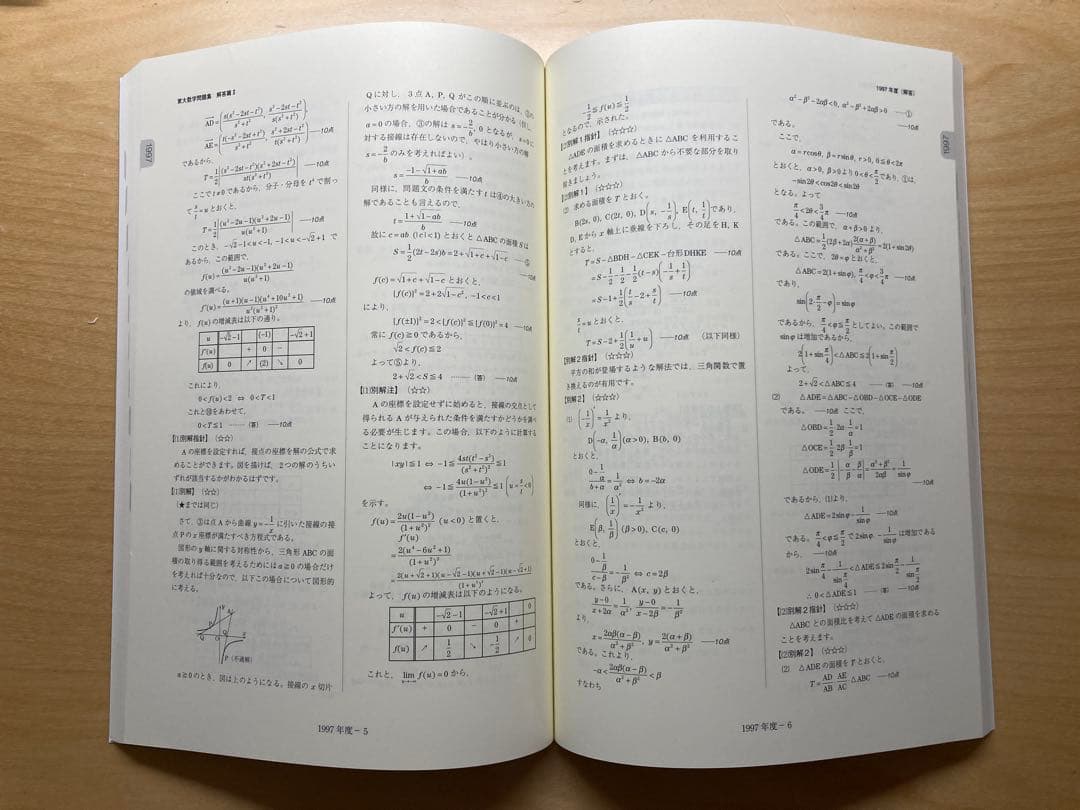 東大数学問題集 解答篇Ⅱ
1997
AD=|s(s²-2st-t²)/(s²+t²), (s²-2st-t²)/(s(s²+t²))|
AE=|t(-s²-2st+t²)/(s²+t²), (s²+2st-t²)/(t(s²+t²))| ──10点
であるから,
T=1/2|(s²-2st-t²)(s²+2st-t²)/(st(s²+t²))| ──10点
ここで t≠0 であるから, 分子・分母を t⁴ で割っ
て s/t=u とおくと,
T=1/2|(u²-2u-1)(u²+2u-1)/(u(u²+1))|
このとき, -√2-1<u<-1, -1<u<-√2+1 で
あるから, この範囲で,
f(u)=(u²-2u-1)(u²+2u-1)/(u(u²+1))
の値域を調べる。
f'(u)=(u+1)(u-1)(u⁴+10u²+1)/(u²(u²+1)²) ──10点
より, f(u) の増減表は以下の通り。
u -√2-1 (-1) -√2+1
f'(u) + 0 -
f(u) 0 ↗ (2) ↘ 0
これにより,
0<f(u)<2 ⇔ 0<T<1
これと⑩をあわせて,
0<T≦1 ……(答) ──10点
【(1)別解指針】 (☆☆)
Aの座標を設定すれば, 接点の座標を解の公式で求
めることができます。図を描けば, 2つの解のうちい
ずれが該当するかがわかるはずです。
【(1)別解】 (☆☆)
(★までは同じ)
さて, ③は点Aから曲線 y=-1/x に引いた接線の接
点Pのx座標が満たすべき方程式である。
図形のy軸に関する対称性から, 三角形ABCの面
積の取り得る範囲を考えるためには a≧0 の場合だけ
を考えれば十分なので, 以下この場合について図形的
に考える。
P (不適解)
a≧0のとき, 図は上のようになる。接線の x 切片
Qに対し, 3点A, P, Qがこの順に並ぶのは, ③の
小さい方の解を用いた場合であることが分かる (但し,
a=0の場合, ③の解は s=-2/b, 0となるが, s=0に
対する接線は存在しないので, やはり小さい方の解
s=-2/b のみを考えればよい)。
s=(-1-√1+ab)/b ──10点
同様に, 問題文の条件を満たすtは④の大きい方の
解であることも言えるので,
t=(1+√1-ab)/b ──10点
故に c=ab (|c|<1) とおくと△ABCの面積Sは
S=1/2(2t-2s)b=2+√1+c+√1-c ──⑤
f(c)=√1+c+√1-c とおくと,
{f(c)}²=2+2√1-c², -1<c<1
により,
{f(±1)}²=2<{f(c)}²≦{f(0)}²=4 ──10点
常に f(c)≧0 であるから,
√2<f(c)≦2
よって⑤より,
2+√2<S≦4 ……(答) ──10点
【(1)別解注】 (☆☆)
Aの座標を設定せずに始めると, 接線の交点として
得られるAが与えられた条件を満たすかどうかを調べ
る必要が生じます。この場合, 以下のように計算する
ことになります。
|xy|≦1 ⇔ -1≦4st(t²-s²)/(s²+t²)²≦1
⇔ -1≦4u(1-u²)/(1+u²)²≦1 (u=s/t<0)
を示す。
f(u)=2u(1-u²)/(1+u²)² (u<0) と置くと,
f'(u)
=2(u⁴-6u²+1)/(1+u²)³
=2(u+√2+1)(u-√2-1)(u+√2-1)(u-√2+1)/(1+u²)³
よって, f(u) の増減表は以下のようになる。
u -√2-1 -√2+1 0
f'(u) + 0 - 0 +
f(u) ↗ 1/2 ↘ -1/2 ↗ 0
これと, lim f(u)=0 から,
1997年度－5
1997年度 (解答)
1997
-1/2≦f(u)≦1/2
となるので, 示された。
【(2)別解1指針】 (☆☆☆)
△ADEの面積を求めるときに△ABCを利用するこ
とを考えます。まずは, △ABCから不要な部分を取り
除きましょう。
【(2)別解1】 (☆☆☆)
(2) 求める面積をTとおく。
B(2s, 0), C(2t, 0), D(s, -1/s), E(t, 1/t) であり,
D, Eからx軸上に垂線を下ろし, その足をH, K
とすると,
T=S-△BDH-△CEK-台形DHKE ──10点
=S-1/2-1/2-1/2(t-s)(-1/s+1/t)
=S-1+1/2(t/s-2+s/t) ──10点
s/t=uとおくと,
T=S-2+1/2(1/u+u) ──10点 (以下同様)
【別解2指針】 (☆☆☆)
平方の和が登場するような解法では, 三角関数で置
き換えるのが有用です。
【別解2】 (☆☆☆)
(1) (-1/x)'=1/x² より,
D(-α, 1/α)(α>0), B(b, 0)
とおくと,
(0-1/α)/(b+α)=1/α² ⇔ b=-2α
同様に, (1/x)'=-1/x² より,
E(β, 1/β) (β>0), C(c, 0)
とおくと,
(0-1/β)/(c-β)=-1/β² ⇔ c=2β
である。さらに, A(x, y) とおくと,
(y-0)/(x+2α)=1/α², (y-0)/(x-2β)=-1/β²
より,
x=2αβ(α-β)/(α²+β²), y=2(α+β)/(α²+β²) ──10点
である。これより,
-α<2αβ(α-β)/(α²+β²)<β
すなわち
α²-β²-2αβ<0, α²-β²+2αβ>0 ──①
である。 ──10点
ここで,
α=rcosθ, β=rsinθ, r>0, 0≦θ<2π
とおくと, α>0, β>0より0<θ<π/2であり, ①は,
-sin2θ<cos2θ<sin2θ
となる。よって
π/4<2θ<3/4π ──10点
である。この範囲で, α+β>0より,
△ABC=1/2(2β+2α)2(α+β)/(α²+β²)=2(1+sin2θ)
である。ここで, 2θ=φとおくと,
△ABC=2(1+sinφ), π/4<φ<3/4π ──10点
であり,
sin(2・π/2-φ)=sinφ
であるから, π/4<φ≦π/2としてよい。この範囲で
sinφは増加であるから,
2(1+sinπ/4)<△ABC≦2(1+sinπ/2)
よって,
2+√2<△ABC≦4 ……(答) ──10点
(2) △ADE=△ABC-△OBD-△OCE-△ODE
である。 ──10点 ここで,
△OBD=1/2・2α・1/α=1
△OCE=1/2・2β・1/β=1
△ODE=1/2|-α/β-β/α|=(α²+β²)/2αβ=1/sinφ
であるから, (1)より,
△ADE=2sinφ-1/sinφ ──10点
である。π/4<φ≦π/2で2sinφ-1/sinφは増加である
から,
2sinπ/4-1/sinπ/4<△ADE≦2sinπ/2-1/sinπ/2
∴ 0<△ADE≦1 ……(答) ──10点
【(2)別解2指針】 (☆☆☆)
△ABCとの面積比を考えて△ADEの面積を求める
ことを考えます。
【(2)別解2】 (☆☆☆)
(2) △ADEの面積をTとおくと,
T=AD/AB・AE/AC・△ABC ──10点
1997年度－6